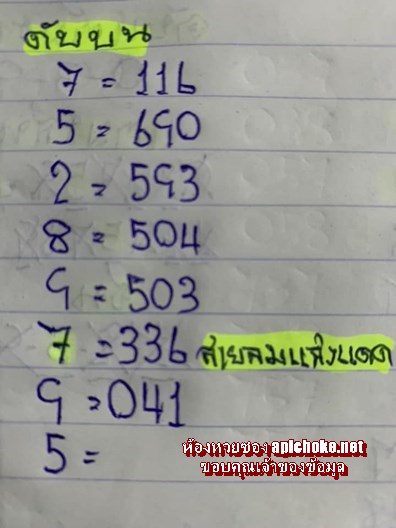 ดับบน
7 = 116
5 = 690
2 = 593
8 = 504
9 = 503
7 = 336 สายลมแสงแดด
9 = 041
5 =
ห้องหวยซอง apichoke.net
ขอบคุณเจ้าของข้อมูล